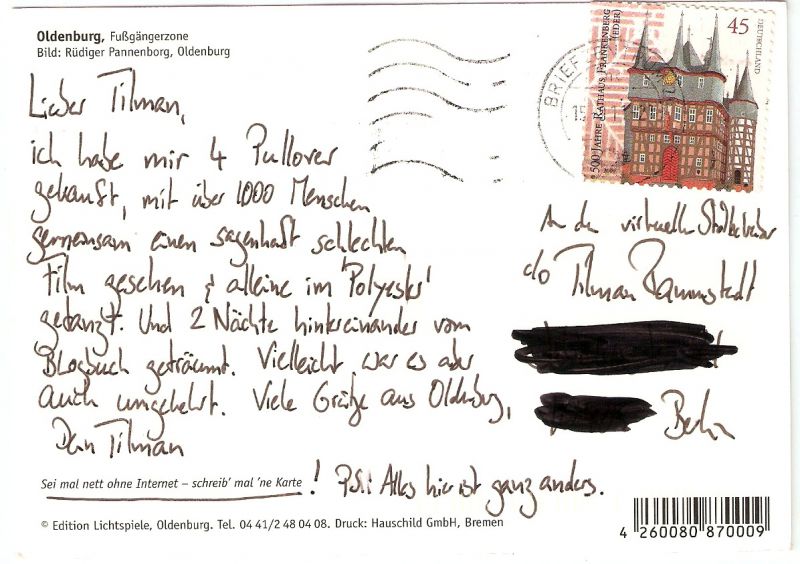 Oldenburg, Fußgängerzone
Bild: Rüdiger Pannenborg, Oldenburg
Lieber Tilman,
ich habe mir 4 Pullover
gekauft, mit über 1000 Menschen
gemeinsam einen sagenhaft schlechten
Film gesehen & alleine im 'Polyester'
getanzt. Und 2 Nächte hintereinander vom
Blogbuch geträumt. Vielleicht war es aber
auch umgekehrt. Viele Grütze aus Oldenburg,
Dein Tilman
Sei mal nett ohne Internet – schreib' mal 'ne Karte !
P.S.: Alles hier ist ganz anders.
© Edition Lichtspiele, Oldenburg. Tel. 04 41/2 48 04 08. Druck: Hauschild GmbH, Bremen
BRIEF
15
500 JAHRE RATHAUS FRANKENBERG (EDER)
45
DEUTSCHLAND
An den virtuellen
c/o Tilman Rammstedt
Berlin
4 260080 870009